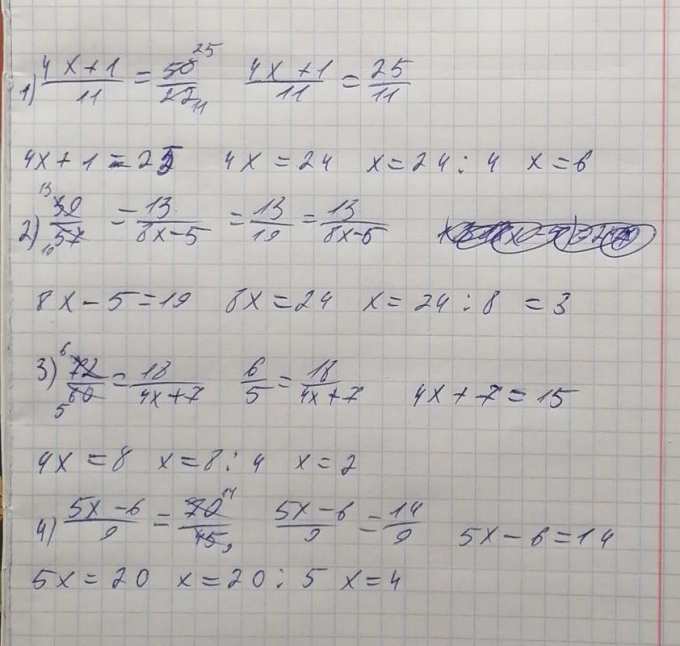 1) (4x+1)/11 = 50/22 25 11 (4x+1)/11 = 25/11
4x+1=25 4x=24 x=24:4 x=6
2) 39/57 13 19 = 13/(8x-5) = 13/19 = 13/(8x-5)
8x-5=19 8x=24 x=24:8 =3
3) 72/60 6 5 = 18/(4x+7) 6/5 = 18/(4x+7) 4x+7=15
4x=8 x=8:4 x=2
4) (5x-6)/9 = 70/45 14 9 (5x-6)/9 = 14/9 5x-6=14
5x=20 x=20:5 x=4